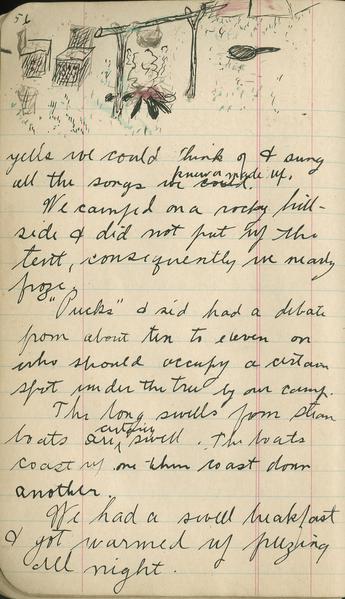 56
yells we could think of & sung
all the songs we could.
knew or made up.
We camped on a rocky hill-
side & did not put up the
tent, consequently we nearly
froze.
"Pucks" & sid had a debate
from about ten to eleven on
who should occupy a certain
spot under the tree by our camp.
The long swells from steam
boats are certainly swell. The boats
coast up one then coast down
another.
We had a swell breakfast
& got warmed up freezing
all night.